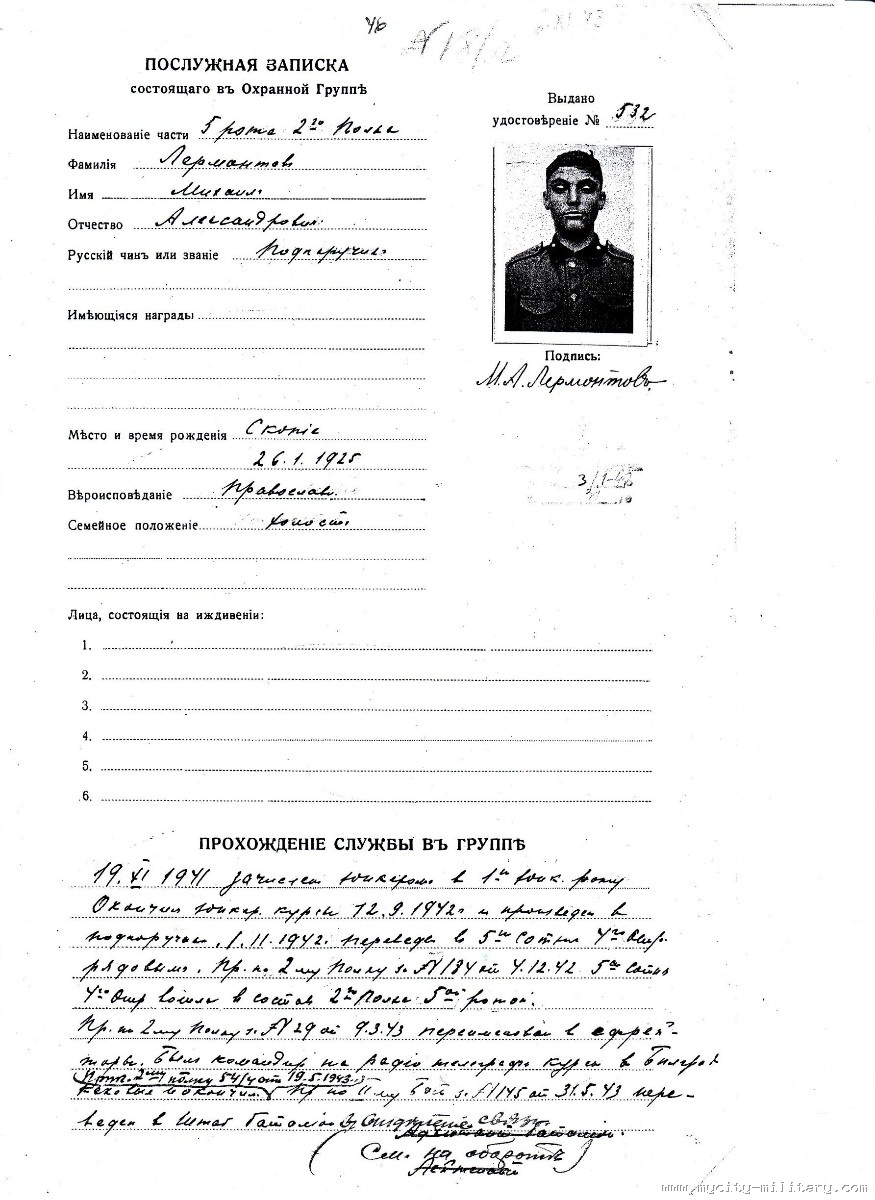 46
ПОСЛУЖНАЯ ЗАПИСКА
состоящаго въ Охранной Группѣ
Выдано
удостовѣреніе № 532
Наименованіе части 5 рота 2го Полка
Фамилія Лермонтовъ
Имя Михаил
Отчество Александрович
Русскій чинъ или званіе Подпоручик
Имѣющіяся награды
Подпись:
М.А. Лермонтовъ
Мѣсто и время рожденія Скопіе
26.1.1925
Вѣроисповѣданіе Православ.
Семейное положеніе холост
Лица, состоящія на иждивеніи:
1.
2.
3.
4.
5.
6.
ПРОХОЖДЕНІЕ СЛУЖБЫ ВЪ ГРУППѢ
19.XI 1941 зачислен юнкером в 1ю юнк. роту
Окончил юнкер. курсы 12.9.1942г и произведен в
подпоручики. 1.11.1942г. переведен в 5ю Сотню 4го
рядовым. Пр. по 2му Полку за № 184 от 4.12.42 5ая Сотня
4го вошла в состав 2го Полка 5ой ротой.
Пр. по 2му Полку за № 29 от 9.3.43 переименован в ефрей-
торы. Был командир на радіо телеграфн курсы в
2му полку 54/4 от 19.5.1943г.
и окончил. Пр по II му за № 145 от 31.5.43 пере-
веден в Штаб связи
(См. на оборотѣ)
www.mycity-military.com